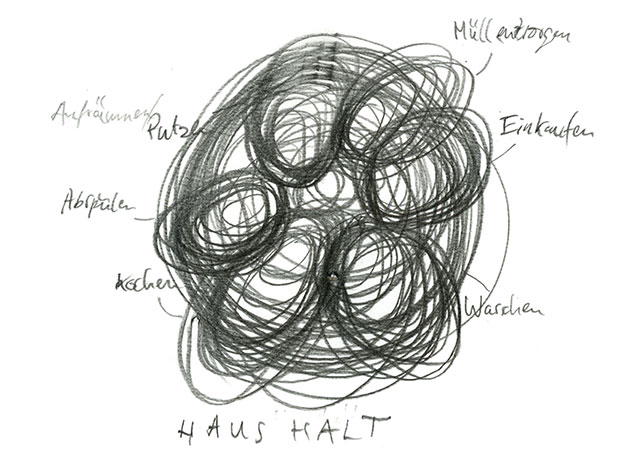 Müllentsorgen
Aufräumen/
Putzen
Einkaufen
Abspülen
Kochen
Waschen
HAUSHALT